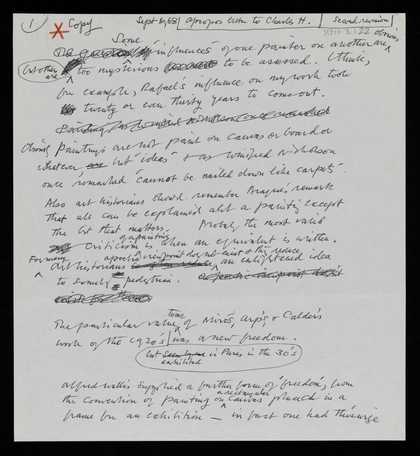 1 Copy Sept 1968 apropos letter to Charles H. Second revision
Some influences of one painter on another are obvious,
but others are too mysterious to be assessed. I think,
for example, Raphael's influence on my work took
twenty or even thirty years to come out.
Obviously paintings are not paint on canvas or board or
whatever, but 'ideas' & as Winifred Nicholson
once remarked 'cannot be nailed down like carpets'.
Also art historians should remember Braque's remark
that all can be explained abt a painting except
the bit that matters. Probably, the most valid
criticism of a painting is when an equivalent is written.
For many art historians a poetic viewpoint does not exist & they reduce an enlightened idea
to somethg pedestrian.
The particular value to me of Miró's, Arp's & Calder's
work of the 1920's was a new freedom.
but exhibited in Paris in the 30's
Alfred Wallis supplied a further form of 'freedom', from
the convention of painting on a rectangular canvas placed in a
frame for an exhibition — in fact one had